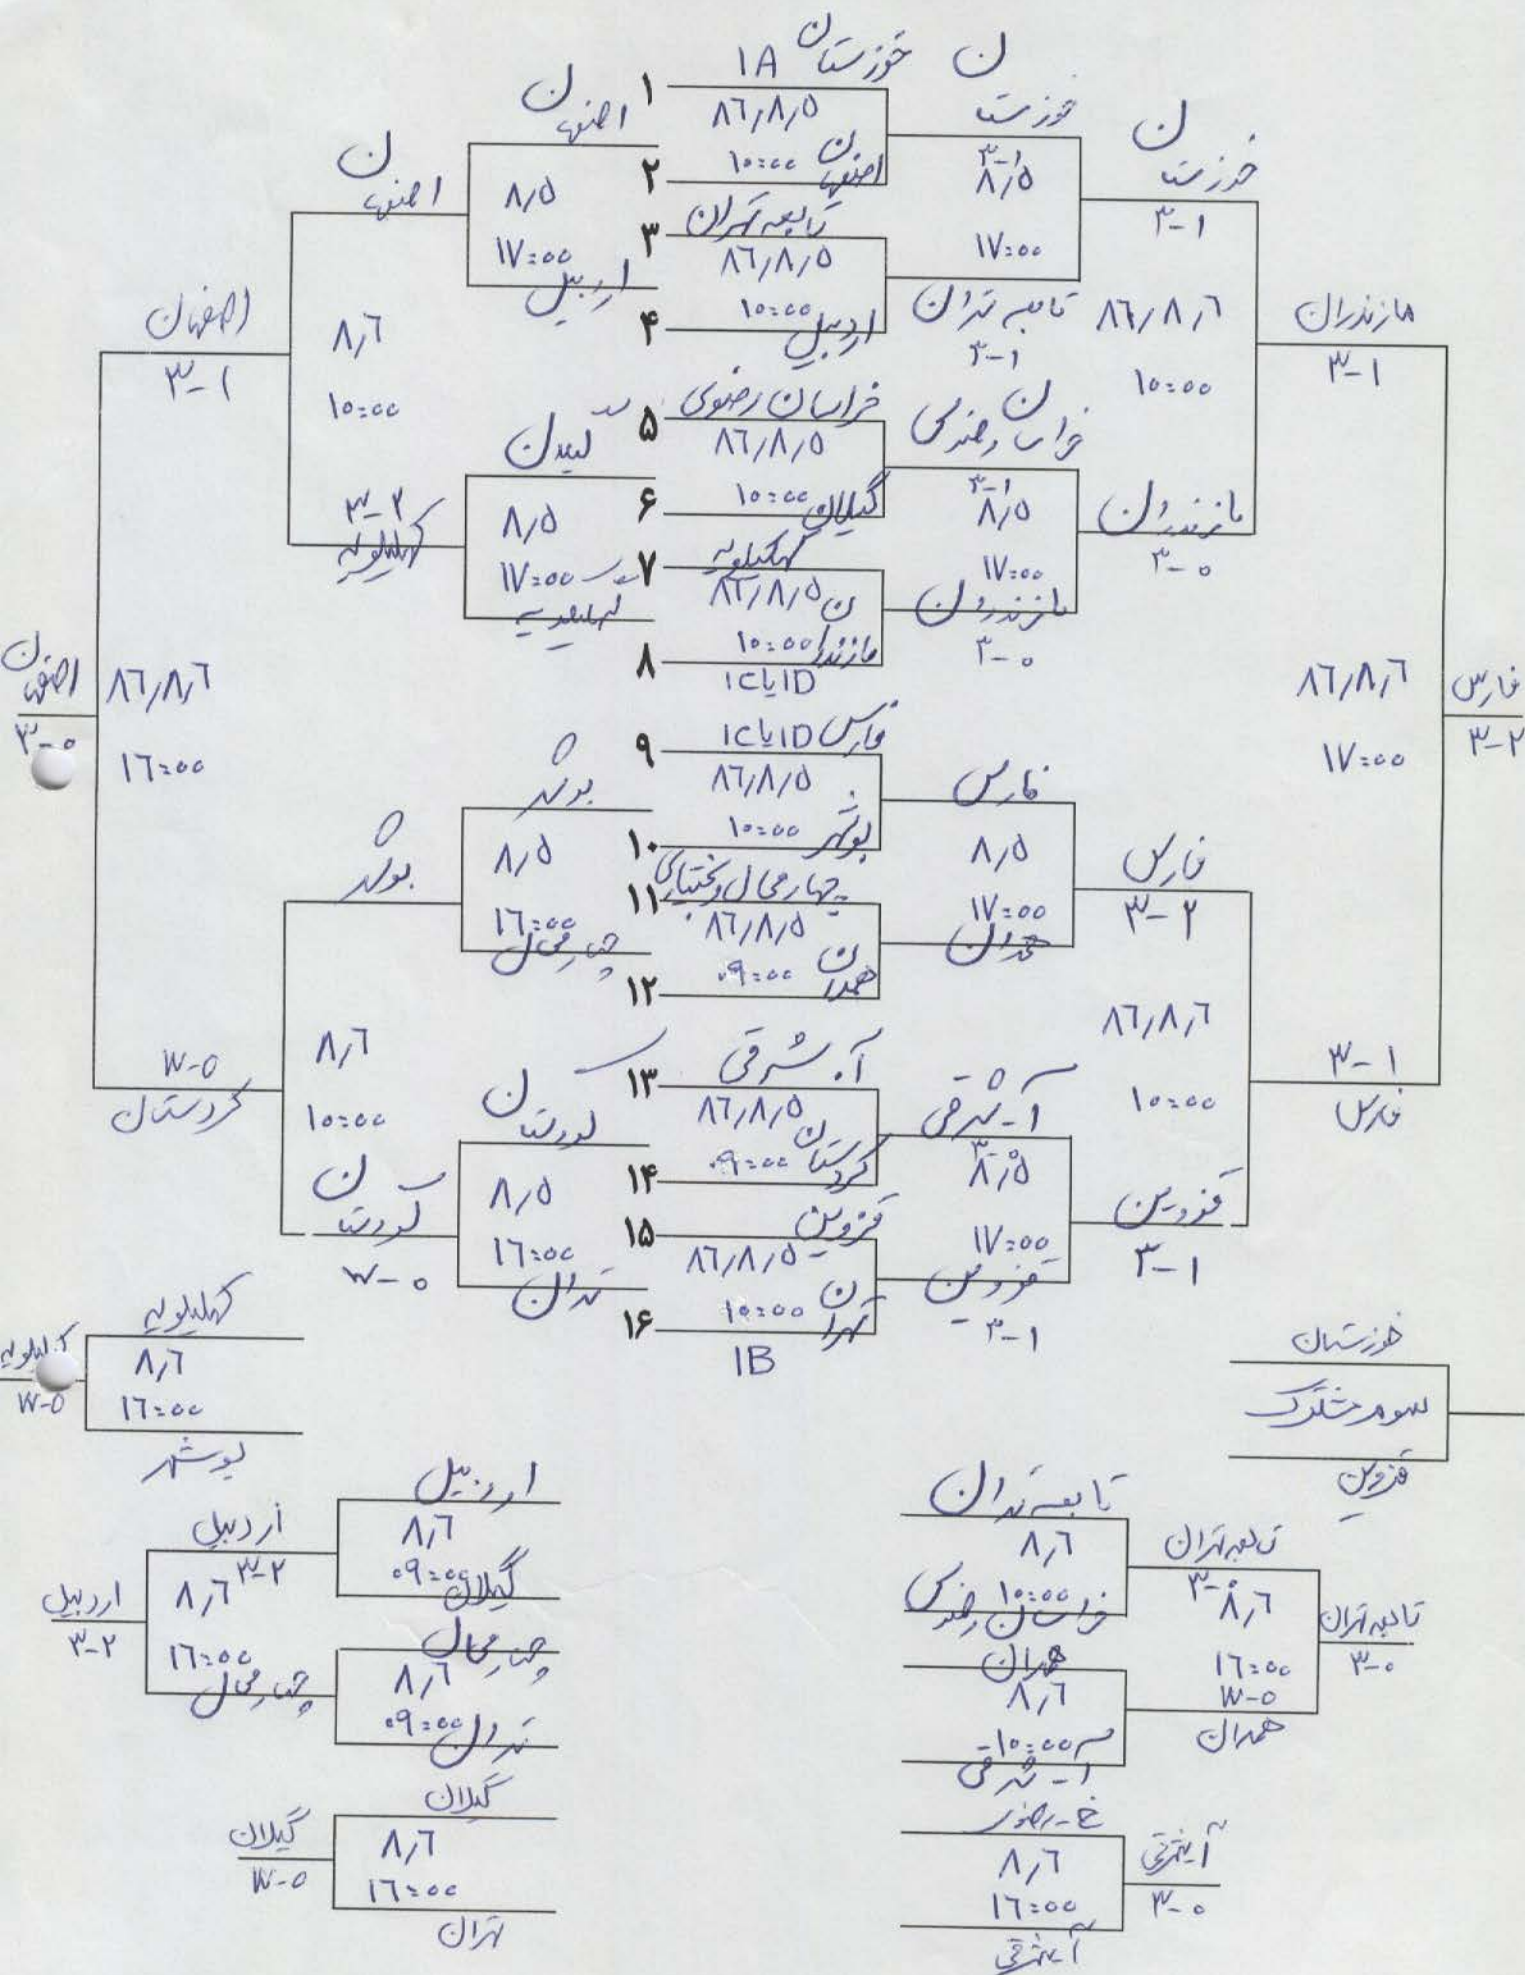 1A خوزستان
۱
۸۶/۸/۵
۱۰:۰۰
اصفهان
۲
۳
تابعه تهران
۸۶/۸/۵
۱۰:۰۰
اردبیل
۴
۵
خراسان رضوی
۸۶/۸/۵
۱۰:۰۰
گیلان
۶
۷
کهگیلویه
۸۶/۸/۵
۱۰:۰۰
مازندران
۸
1D یا 1C
1D یا 1C فارس
۹
۸۶/۸/۵
۱۰:۰۰
بوشهر
۱۰
۱۱
چهارمحال و بختیاری
۸۶/۸/۵
۰۹:۰۰
همدان
۱۲
۱۳
آ. شرقی
۸۶/۸/۵
۰۹:۰۰
کردستان
۱۴
۱۵
قزوین
۸۶/۸/۵
۱۰:۰۰
تهران
۱۶
1B
خوزستان
۳-۱
۸/۵
۱۷:۰۰
تابعه تهران
۳-۱
خراسان رضوی
۳-۱
۸/۵
۱۷:۰۰
مازندران
۳-۰
فارس
۸/۵
۱۷:۰۰
همدان
آ-شرقی
۳-۰
۸/۵
۱۷:۰۰
قزوین
۳-۱
خوزستان
۳-۱
۸۶/۸/۶
۱۰:۰۰
مازندران
۳-۰
فارس
۳-۲
۸۶/۸/۶
۱۰:۰۰
قزوین
۳-۱
مازندران
۳-۱
۸۶/۸/۶
۱۷:۰۰
۳-۱
فارس
فارس
۳-۲
اصفهان
۸/۵
۱۷:۰۰
اردبیل
گیلان
۸/۵
۱۷:۰۰
کهگیلویه
بوشهر
۸/۵
۱۶:۰۰
چهارمحال
کردستان
۸/۵
۱۶:۰۰
تهران
اصفهان
۸/۶
۱۰:۰۰
۳-۲
کهگیلویه
بوشهر
۸/۶
۱۰:۰۰
کردستان
۳-۰
اصفهان
۳-۱
۸۶/۸/۶
۱۶:۰۰
۳-۰
کردستان
اصفهان
۳-۰
کهگیلویه
۸/۶
۱۶:۰۰
بوشهر
کهگیلویه
۳-۰
خوزستان
سوم مشترک
قزوین
اردبیل
۸/۶
۰۹:۰۰
گیلان
چهارمحال
۸/۶
۰۹:۰۰
تهران
اردبیل
۳-۲
۸/۶
۱۶:۰۰
چهارمحال
اردبیل
۳-۲
گیلان
۸/۶
۱۶:۰۰
تهران
گیلان
۳-۰
تابعه تهران
۸/۶
۱۰:۰۰
خراسان رضوی
همدان
۸/۶
۱۰:۰۰
آ-شرقی
تابعه تهران
۳-۰
۸/۶
۱۶:۰۰
۳-۰
همدان
تابعه تهران
۳-۰
خ-رضوی
۸/۶
۱۶:۰۰
آ-شرقی
آ-شرقی
۳-۰